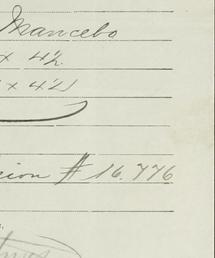 Mancebo
x 42
x 42)
cion # 16.776